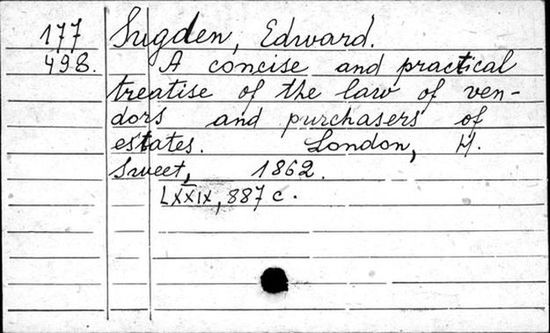 177 Sugden, Edward.
498. A concise and practical
treatise of the law of ven-
dors and purchasers of
estates. London, H.
Sweet, 1862.
LXXIX, 887 c.